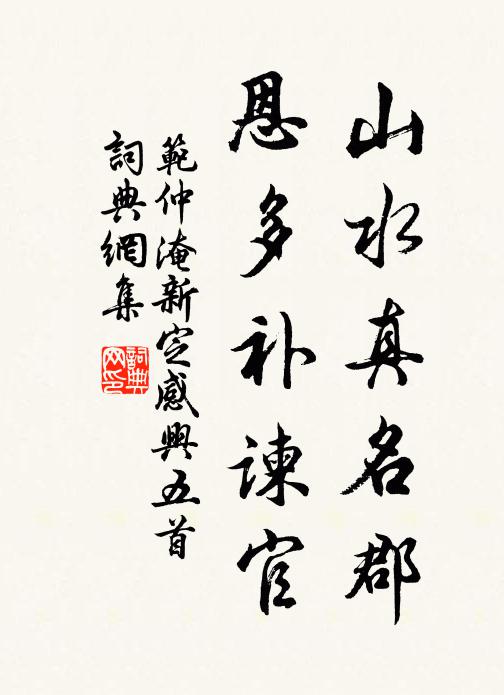 山水真名郡
恩多补谏官
範仲淹新定感興五首
詞典網集
詞典网印